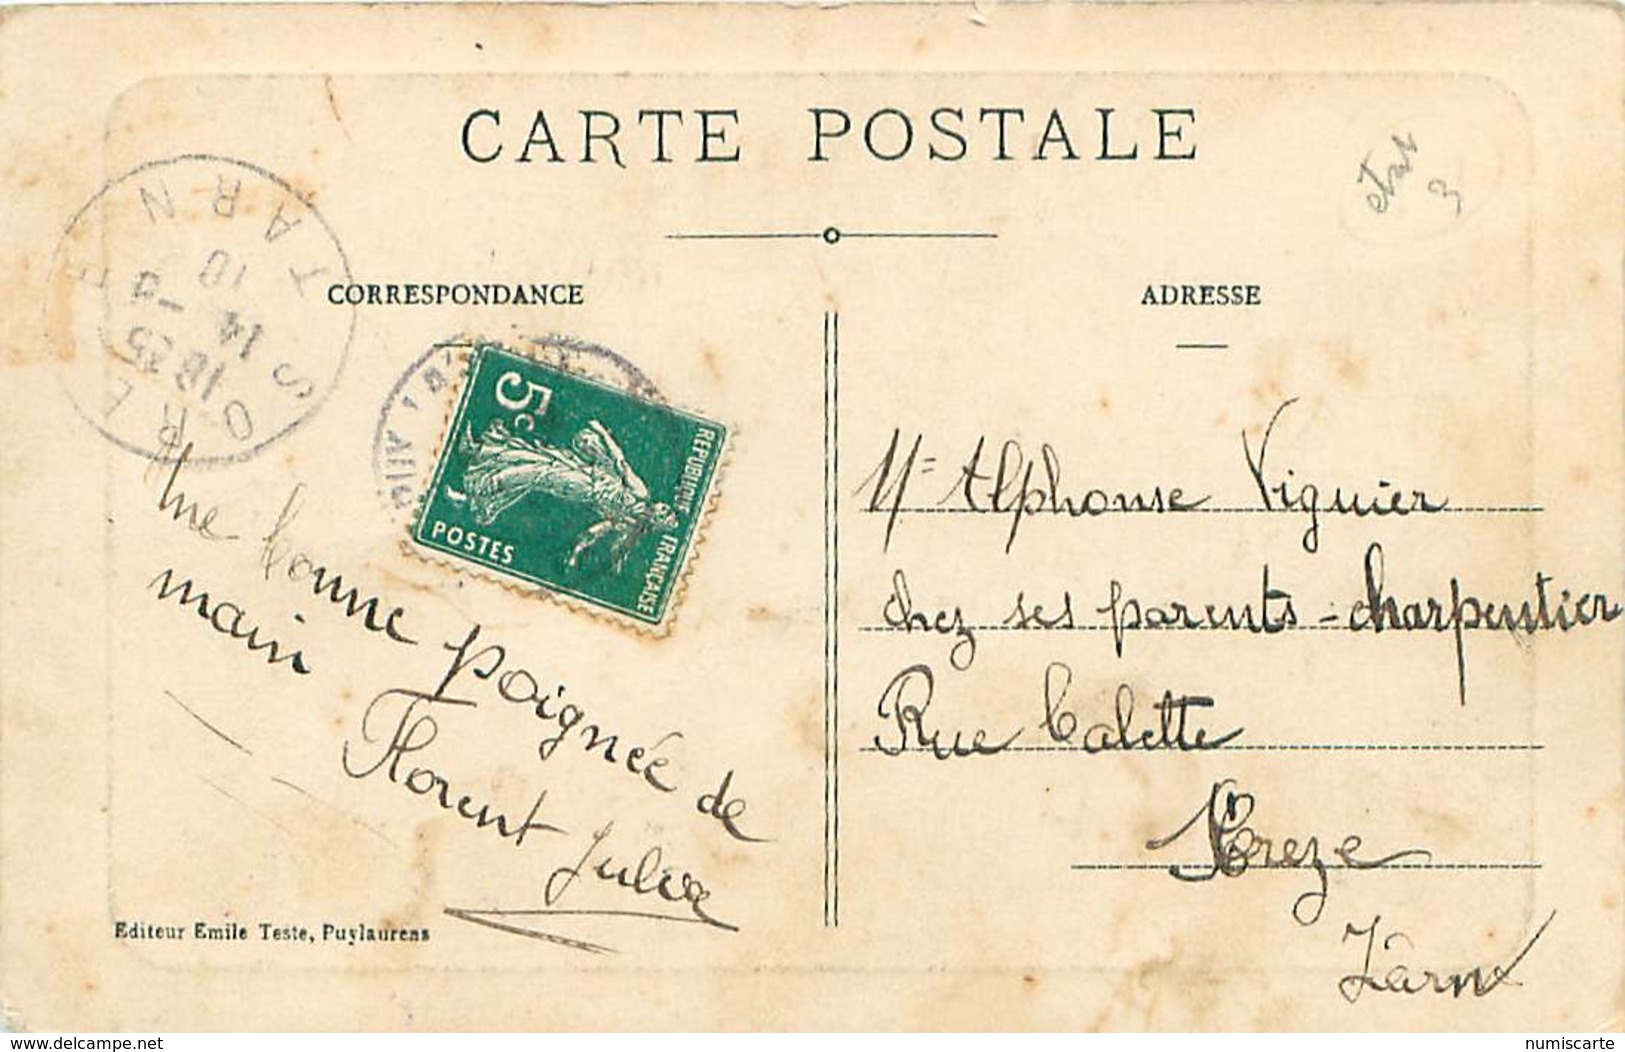 CARTE POSTALE
état
3
CORRESPONDANCE
ADRESSE
SORÈZE
TARN
18 25
14 - 9
10
5c
REPUBLIQUE FRANÇAISE
POSTES
Une bonne poignée de
main
Florent Julva
Mr Alphonse Viguier
chez ses parents - charpentier
Rue Calette
Soreze
Tarn
Editeur Emile Teste, Puylaurens
www.delcampe.net
numiscarte